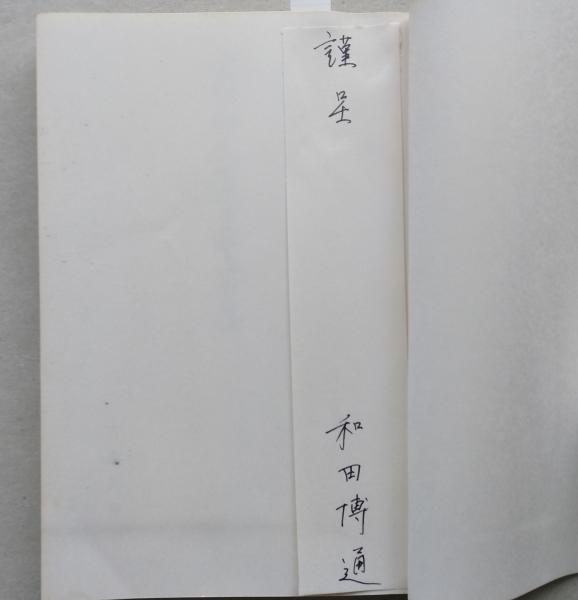 謹呈
和田博通